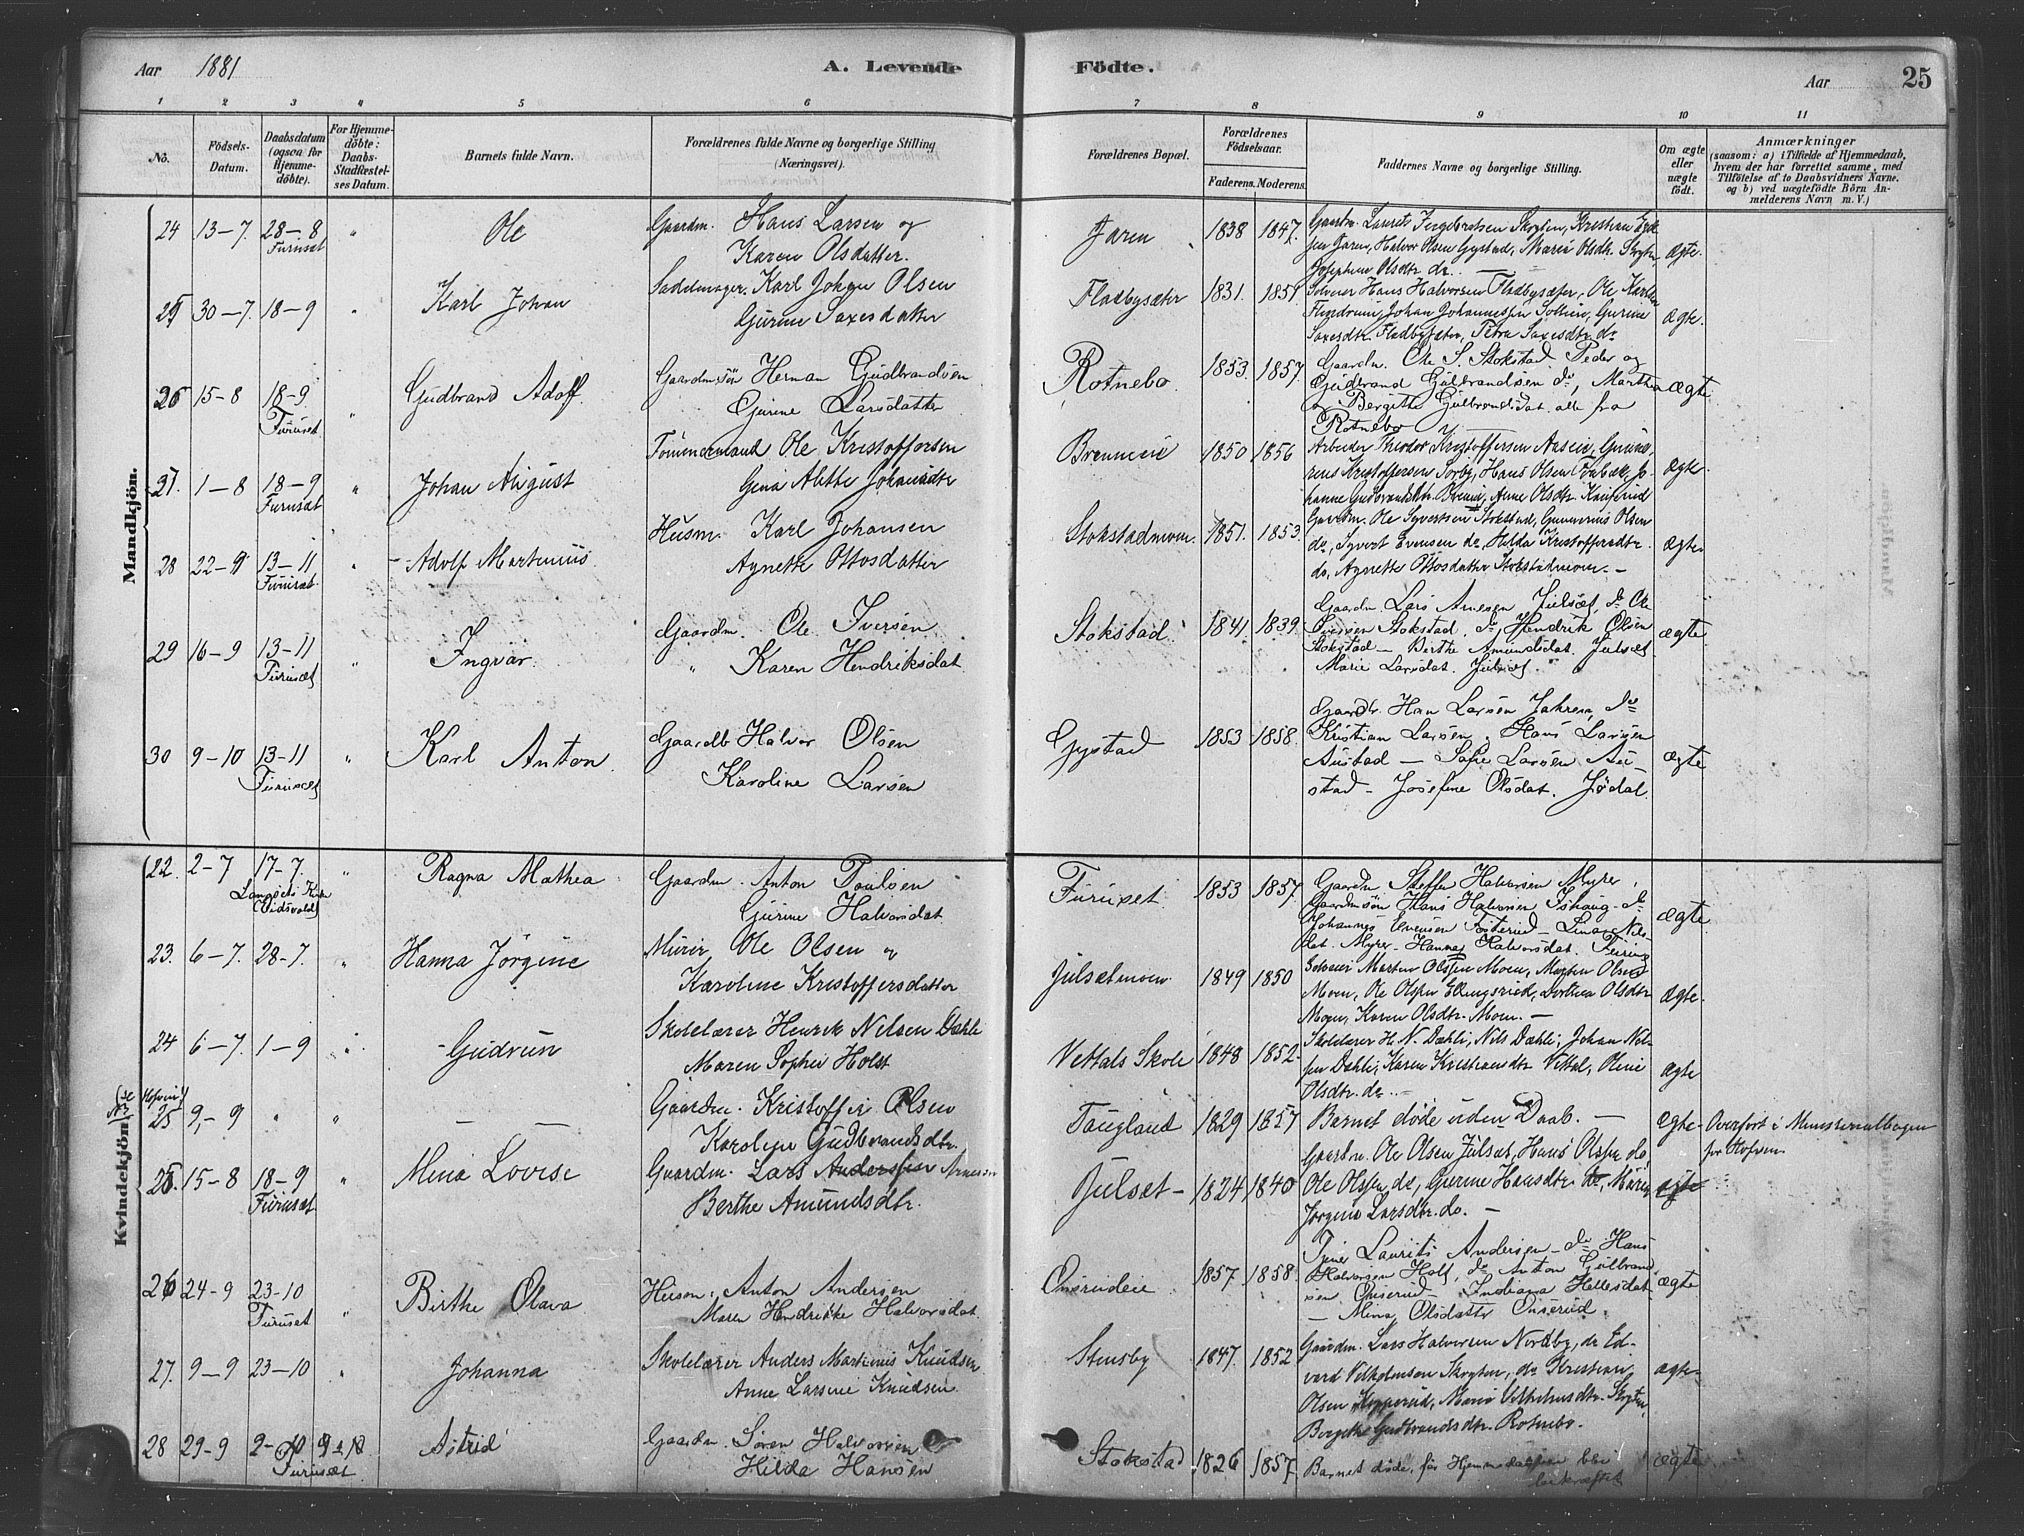 Aar 1881 A. Levende Födte. Aar 25
1 2 3 4 5 6 7 8 9 10 11
No.
Födsels-Datum.
Daabsdatum (ogsaa for Hjemme-döbte).
For Hjemme-döbte: Daabs-Stadfæstel-ses Datum.
Barnets fulde Navn.
Forældrenes fulde Navne og borgerlige Stilling (Næringsvei).
Forældrenes Bopæl.
Forældrenes Födselsaar.
Faderens. Moderens.
Faddernes Navne og borgerlige Stilling.
Om ægte eller uægte födt.
Anmærkninger
(saasom: a) i Tilfælde af Hjemmedaab, hvem der har forrettet samme, med Tilföielse af to Daabsvidners Navne, og b) ved uægtefödte Börn An-melderens Navn m. V.)
Mandkjön.
24 13-7. 28-8 Furuset " Ole
Gaardm. Hans Larsen og
Karen Olsdatter.
Jaren 1838 1847.
Halvor Olsen Gystad, Marie Olsdtr.
Olsdtr do.
ægte.
25 30-7. 18-9 " Karl Johan
Sadelmager Karl Johan Olsen
Gurine Saxesdatter
Fladbysæter 1831. 1851
Hans Halvorsen Fladbysæter, Ole
Johan Johannessen Gurine
Saxesdtr Fladbysæter, Petra Saxesdtr. do
ægte.
26 15-8 18-9 Furuset " Gudbrand Adolf
Gaardmssön Herman Gudbrandsen
Gurine Larsdatter
Rotnebo. 1853. 1857.
Gaardm. Ole S. Stokstad Peder og
Gudbrand Gulbrandsen do, Martha
og Bergitte Gulbrandsdat. alle fra
Rotnebo
ægte
27. 1-8 18-9 Furuset " Johan August
Tømmermand Ole Kristoffersen
Gina Alette Johansdtr
1850 1856
Arbeider Theodor Kristoffersen
Kristoffersen Hans Olsen
Anne Olsdtr.
ægte.
28 22-9 13-11 Furuset " Adolf Martinius
Husm. Karl Johansen
Agnette Ottosdatter
Stokstadmoen. 1851. 1853.
Gaardm. Ole Syvertsen Stokstad, Gunnerius Olsen
do, Syvert Evensen do, Hilda Kristoffersdtr.
do, Agnette Ottosdatter Stokstadmoen.
ægte
29 16-9 13-11 Furuset " Ingvar.
Gaardm. Ole Iversen
" Karen Hendriksdat
Stokstad. 1841. 1839.
Gaardm. Lars Arnesen Julsæt, do Ole
Iversen Stokstad, do Hendrik Olsen
Stokstad - Berthe Amundsdat. Julsæt
Marie Larsdat. Julsæt.
ægte
30 9-10 13-11 Furuset " Karl Anton
Gaardb Halvor Olsen
Karoline Larsen
Gystad 1853 1858.
Larsen Jahren, do
Kristian Larsen. Hans Larsen
Austad - Sofie Larsen Au-
stad - Josefine Olsdat. Jødal.
ægte
Kvindekjön.
22. 2-7 17-7. Langsets Kirke (Eidsvold) " Ragna Mathea
Gaardm. Anton Paulsen
Gurine Halvorsdat
Furuset. 1853 1857.
Gaardm Steffen Halvorsen Myrer,
Gaardmsön Hans Halvorsen do
Johannes Evensen Lina Nils-
dat. Myrer. Hanna Halvorsdat. Feiring
ægte.
23. 6-7. 28-7. " Hanna Jørgine
Murer Ole Olsen og
Karoline Kristoffersdatter
Julsætmoen 1849 1850
Martin Olsen Moen, Morten Olsen
Moen, Ole Olsen Dorthea Olsdtr
Moen, Karen Olsdtr. Moen.
ægte.
24 6-7. 1-9 Gudrun
Skolelærer Henrik Nilsen Dæhli
Maren Sophie Holst
Vettals Skole 1848 1852.
Skolelærer H. N. Dæhli, Nils Dæhli, Johan Nil-
sen Dæhli, Karen Kristiansdtr Vettal, Oline
Olsdtr. do.
ægte
25 9-9 " " —
Gaardm. Kristoffer Olsen
Karoline Gudbrandsdtr.
Taugland 1829 1857
Barnet døde uden Daab.
ægte.
Overført i Ministerialbogen
for Hofvin.
25. 15-8 18-9 Furuset " Mina Lovise
Gaardm. Lars Anderssen Arnesen
Berthe Amundsdtr.
Julset 1824 1840
Gaardm. Ole Olsen Julsæt, Hans Olsen do,
Ole Olsen do, Gurine Hansdtr do, Maren
Jørgine Larsdtr. do.
ægte
26 24-9 23-10 Furuset " Birthe Olava
Anton Andersen
Maren Hendrikke Halvorsdat
Onsrudeie 1857. 1858.
Laurits Andersen - do Hans
Halvorsen do Anton Gulbrand
sen Onserud. Indiana Hellesdat
- Mina Olsdatter Onserud.
ægte
27. 9-9 23-10 " Johanna
Skolelærer Anders Martinius Knudsen
Anne Larsine Knudsen.
Stensby 1847. 1852
Gaardm. Lars Halvorsen Nordby, do Ed-
vard Vilhelmsen do Kristian
Olsen Marie Vilhelmsdtr.
Bergitte Gudbrandsdtr. Rotnebo.
ægte.
28 29-9 Furuset. Astrid
Gaardm. Søren Halvorsen
Hilda Hansen
Stokstad. 1826 1857.
Barnet døde, før Hjemmedaaben blev
bekræftet
ægte